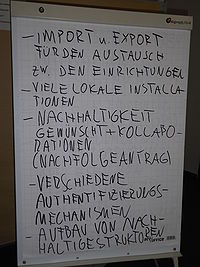 - IMPORT u. EXPORT
FÜR DEN AUSTAUSCH
ZW. DEN EINRICHTUNGEN
- VIELE LOKALE INSTALLA-
TIONEN
- NACHHALTIGKEIT
GEWÜNSCHT + KOLLABO-
RATIONEN
(NACHFOLGEANTRAG)
- VERSCHIEDENE
AUTHENTIFIZIERUNGS-
MECHANISMEN
- AUFBAU VON NACH-
HALTIGESTRUKTUREN